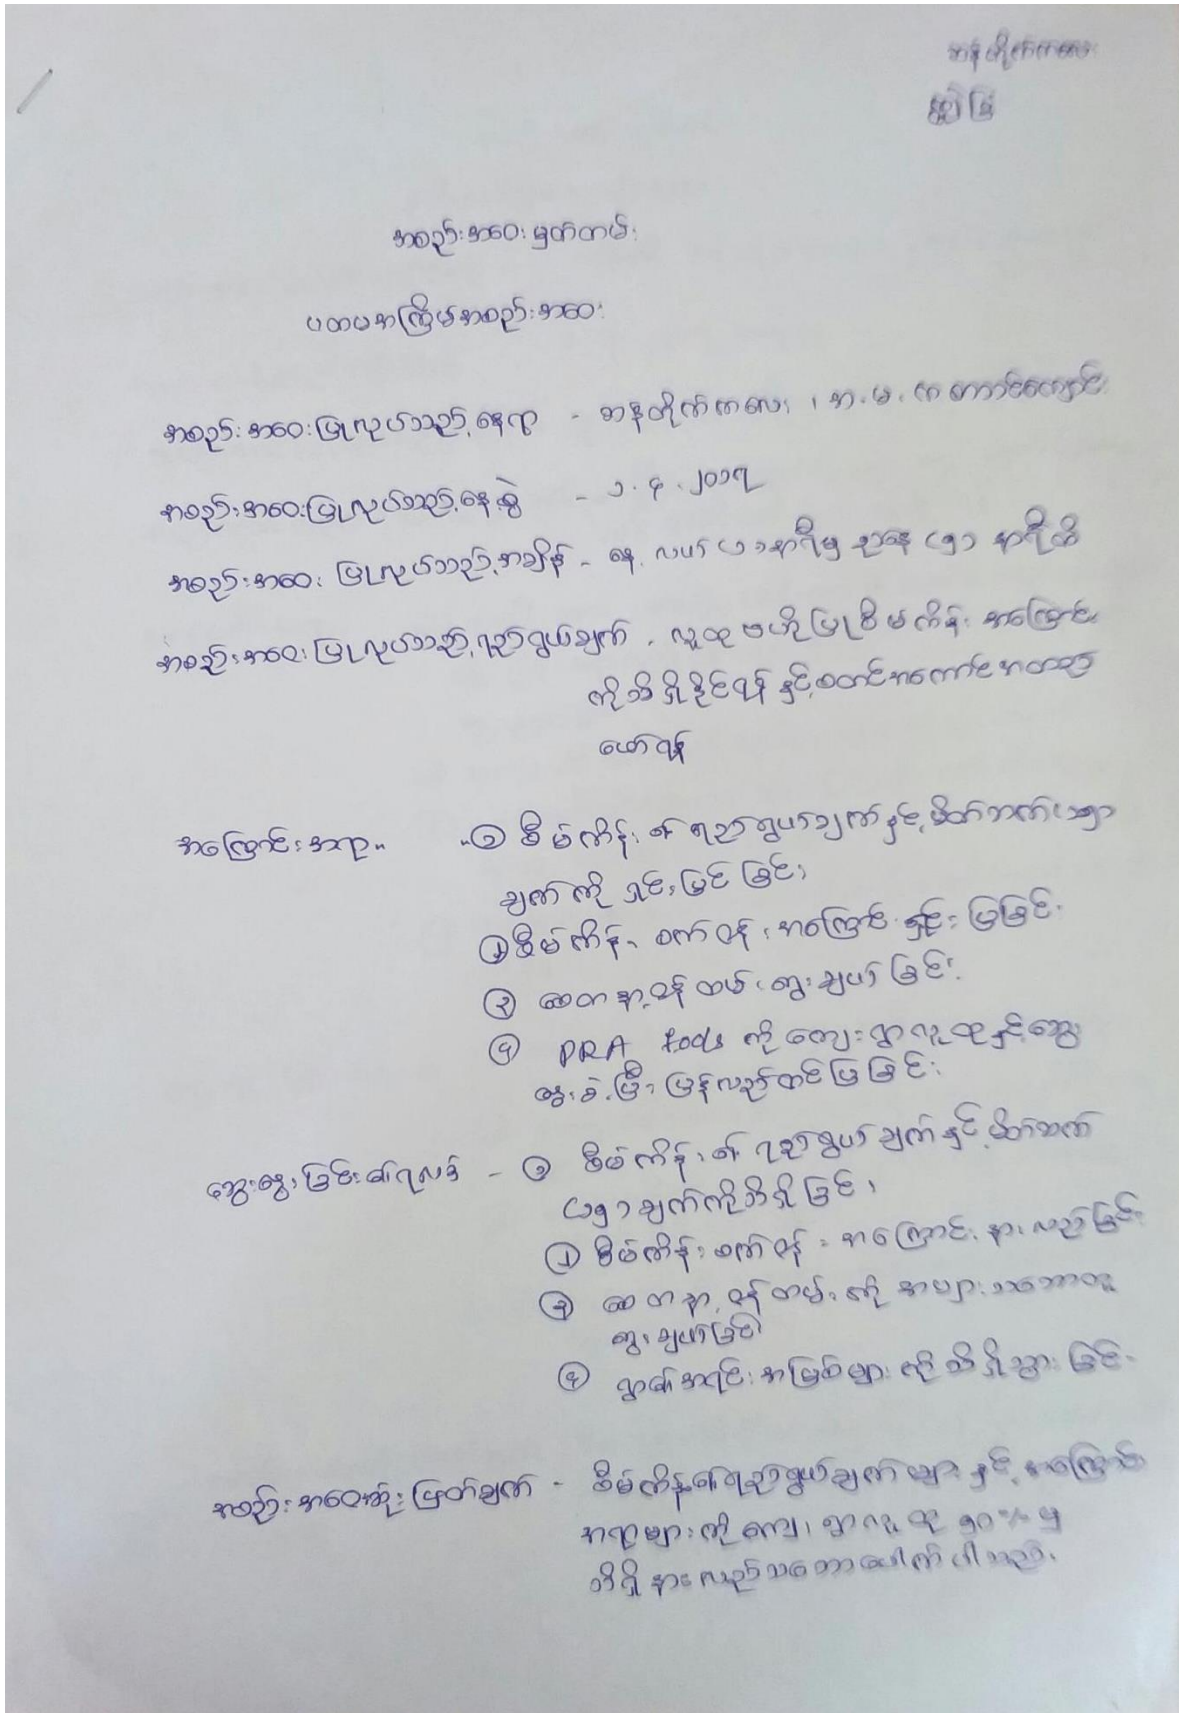 ဆန်တိုက်ကလေး
အစည်းအဝေးမှတ်တမ်း
ပထမအကြိမ်အစည်းအဝေး
အစည်းအဝေးပြုလုပ်သည့်နေရာ - ဆန်တိုက်ကလေး၊ အ.မ.က စာသင်ကျောင်း
အစည်းအဝေးပြုလုပ်သည့်နေ့စွဲ - ၁.၄.၂၀၁၇
အစည်းအဝေးပြုလုပ်သည့်အချိန် - နေ့လယ် (၁) နာရီမှ ညနေ (၅) နာရီထိ
အစည်းအဝေးပြုလုပ်သည့်ရည်ရွယ်ချက် - လူထုဗဟိုပြုစီမံကိန်းအကြောင်း
ကိုသိရှိနိုင်ရန်နှင့်စတင်အကောင်အထည်
ဖော်ရန်
အကြောင်းအရာ - ၁ စီမံကိန်း၏ရည်ရွယ်ချက်နှင့်မိတ်ဆက်
ချက်ကို ရှင်းပြခြင်း
၂ စီမံကိန်းစက်ဝန်းအကြောင်းရှင်းပြခြင်း
၃ စေတနာ့ဝန်ထမ်းရွေးချယ်ခြင်း
၄ PRA tools ကိုကျေးရွာလူထုနှင့်ဆွေး
နွေးခဲ့ပြီးပြန်လည်တင်ပြခြင်း
ဆွေးနွေးခြင်း၏ရလဒ် - ၁ စီမံကိန်း၏ရည်ရွယ်ချက်နှင့်မိတ်ဆက်
(၅) ချက်ကိုသိရှိခြင်း
၂ စီမံကိန်းစက်ဝန်းအကြောင်းနားလည်ခြင်း
၃ စေတနာ့ဝန်ထမ်းကိုအများသဘောတူ
ရွေးချယ်ခြင်း
၄ ရွာ၏အရင်းအမြစ်များကိုသိရှိသွားခြင်း
အစည်းအဝေးဆုံးဖြတ်ချက် - စီမံကိန်း၏ရည်ရွယ်ချက်များနှင့်အကြောင်း
အရာများကိုကျေးရွာလူထု ၅၀% မှ
သိရှိနားလည်သဘောပေါက်ပါသည်။